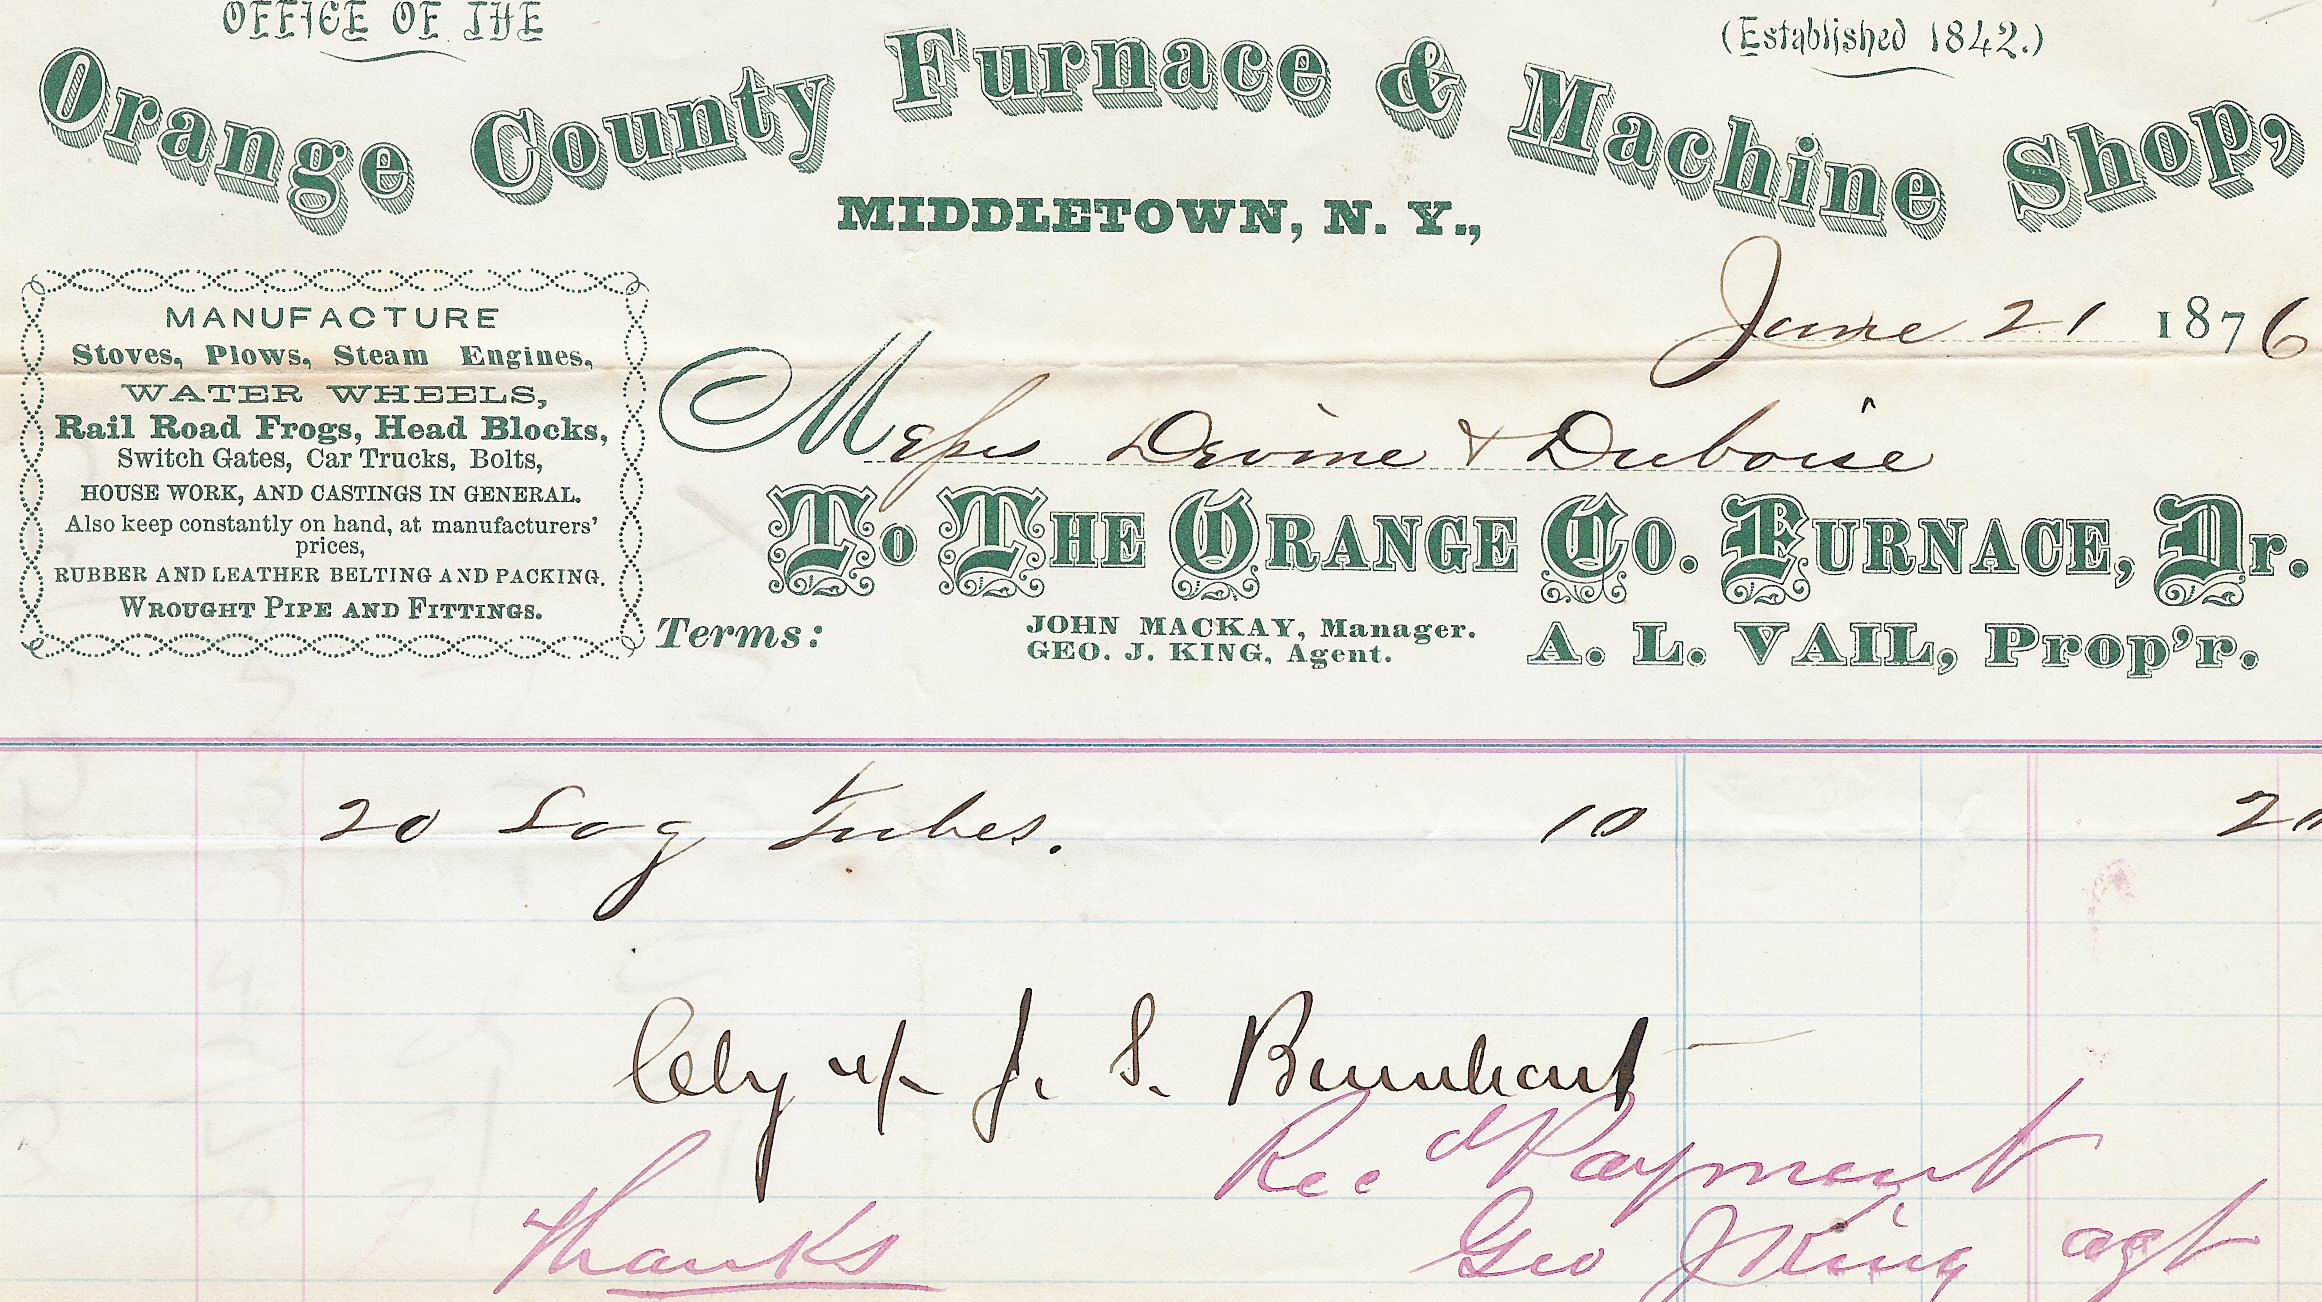 OFFICE OF THE
(Established 1842.)
Orange County Furnace & Machine Shop,
MIDDLETOWN, N. Y.,
June 21 1876
MANUFACTURE
Stoves, Plows, Steam Engines,
WATER WHEELS,
Rail Road Frogs, Head Blocks,
Switch Gates, Car Trucks, Bolts,
HOUSE WORK, AND CASTINGS IN GENERAL.
Also keep constantly on hand, at manufacturers'
prices,
RUBBER AND LEATHER BELTING AND PACKING.
WROUGHT PIPE AND FITTINGS.
Messrs Devine & Duboise
TO THE ORANGE CO. FURNACE, Dr.
Terms:
JOHN MACKAY, Manager.
GEO. J. KING, Agent.
A. L. VAIL, Prop'r.
20 Sag Tubes. 10
J. S.
Recd Payment
Thanks
Geo J King agt